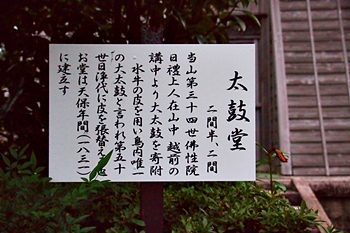 太鼓堂
二間半、二間
当山第三十四世佛性院
日禮上人在山中 越前の
講中より大太鼓を寄附
水牛の皮を用い島内唯一
の大太鼓と言われ第五十
世日淳代に皮を張替え
お堂は天保年間(一八三一)
に建立す